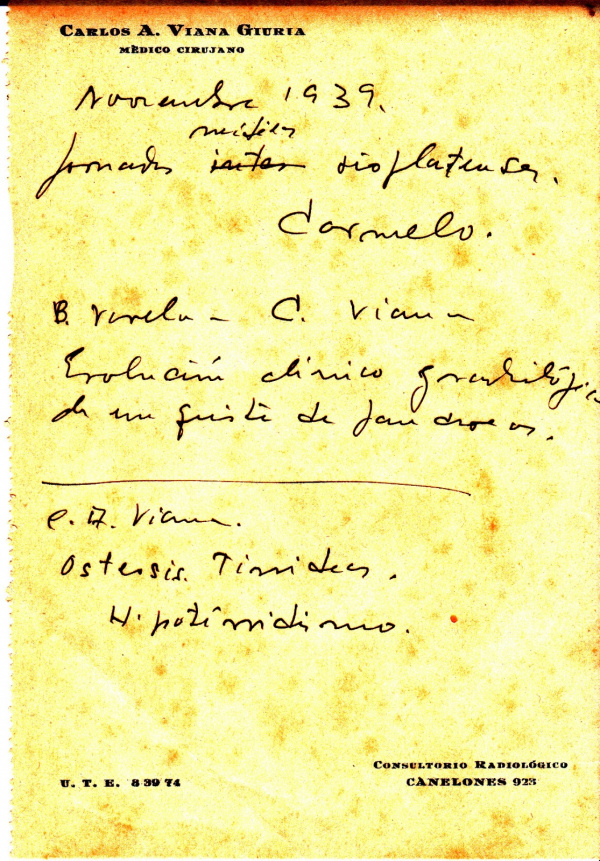 CARLOS A. VIANA GIURIA
MÉDICO CIRUJANO
Noviembre 1939.
médicas
Jornadas rioplatenses.
Carmelo.
B. Varela - C. Viana
Evolución clínico y radiológica
de un quiste de
C. A. Viana.
Osteosis Tiroideas.
Hipotiroidismo.
CONSULTORIO RADIOLÓGICO
U. T. E. 8 39 74
CANELONES 923